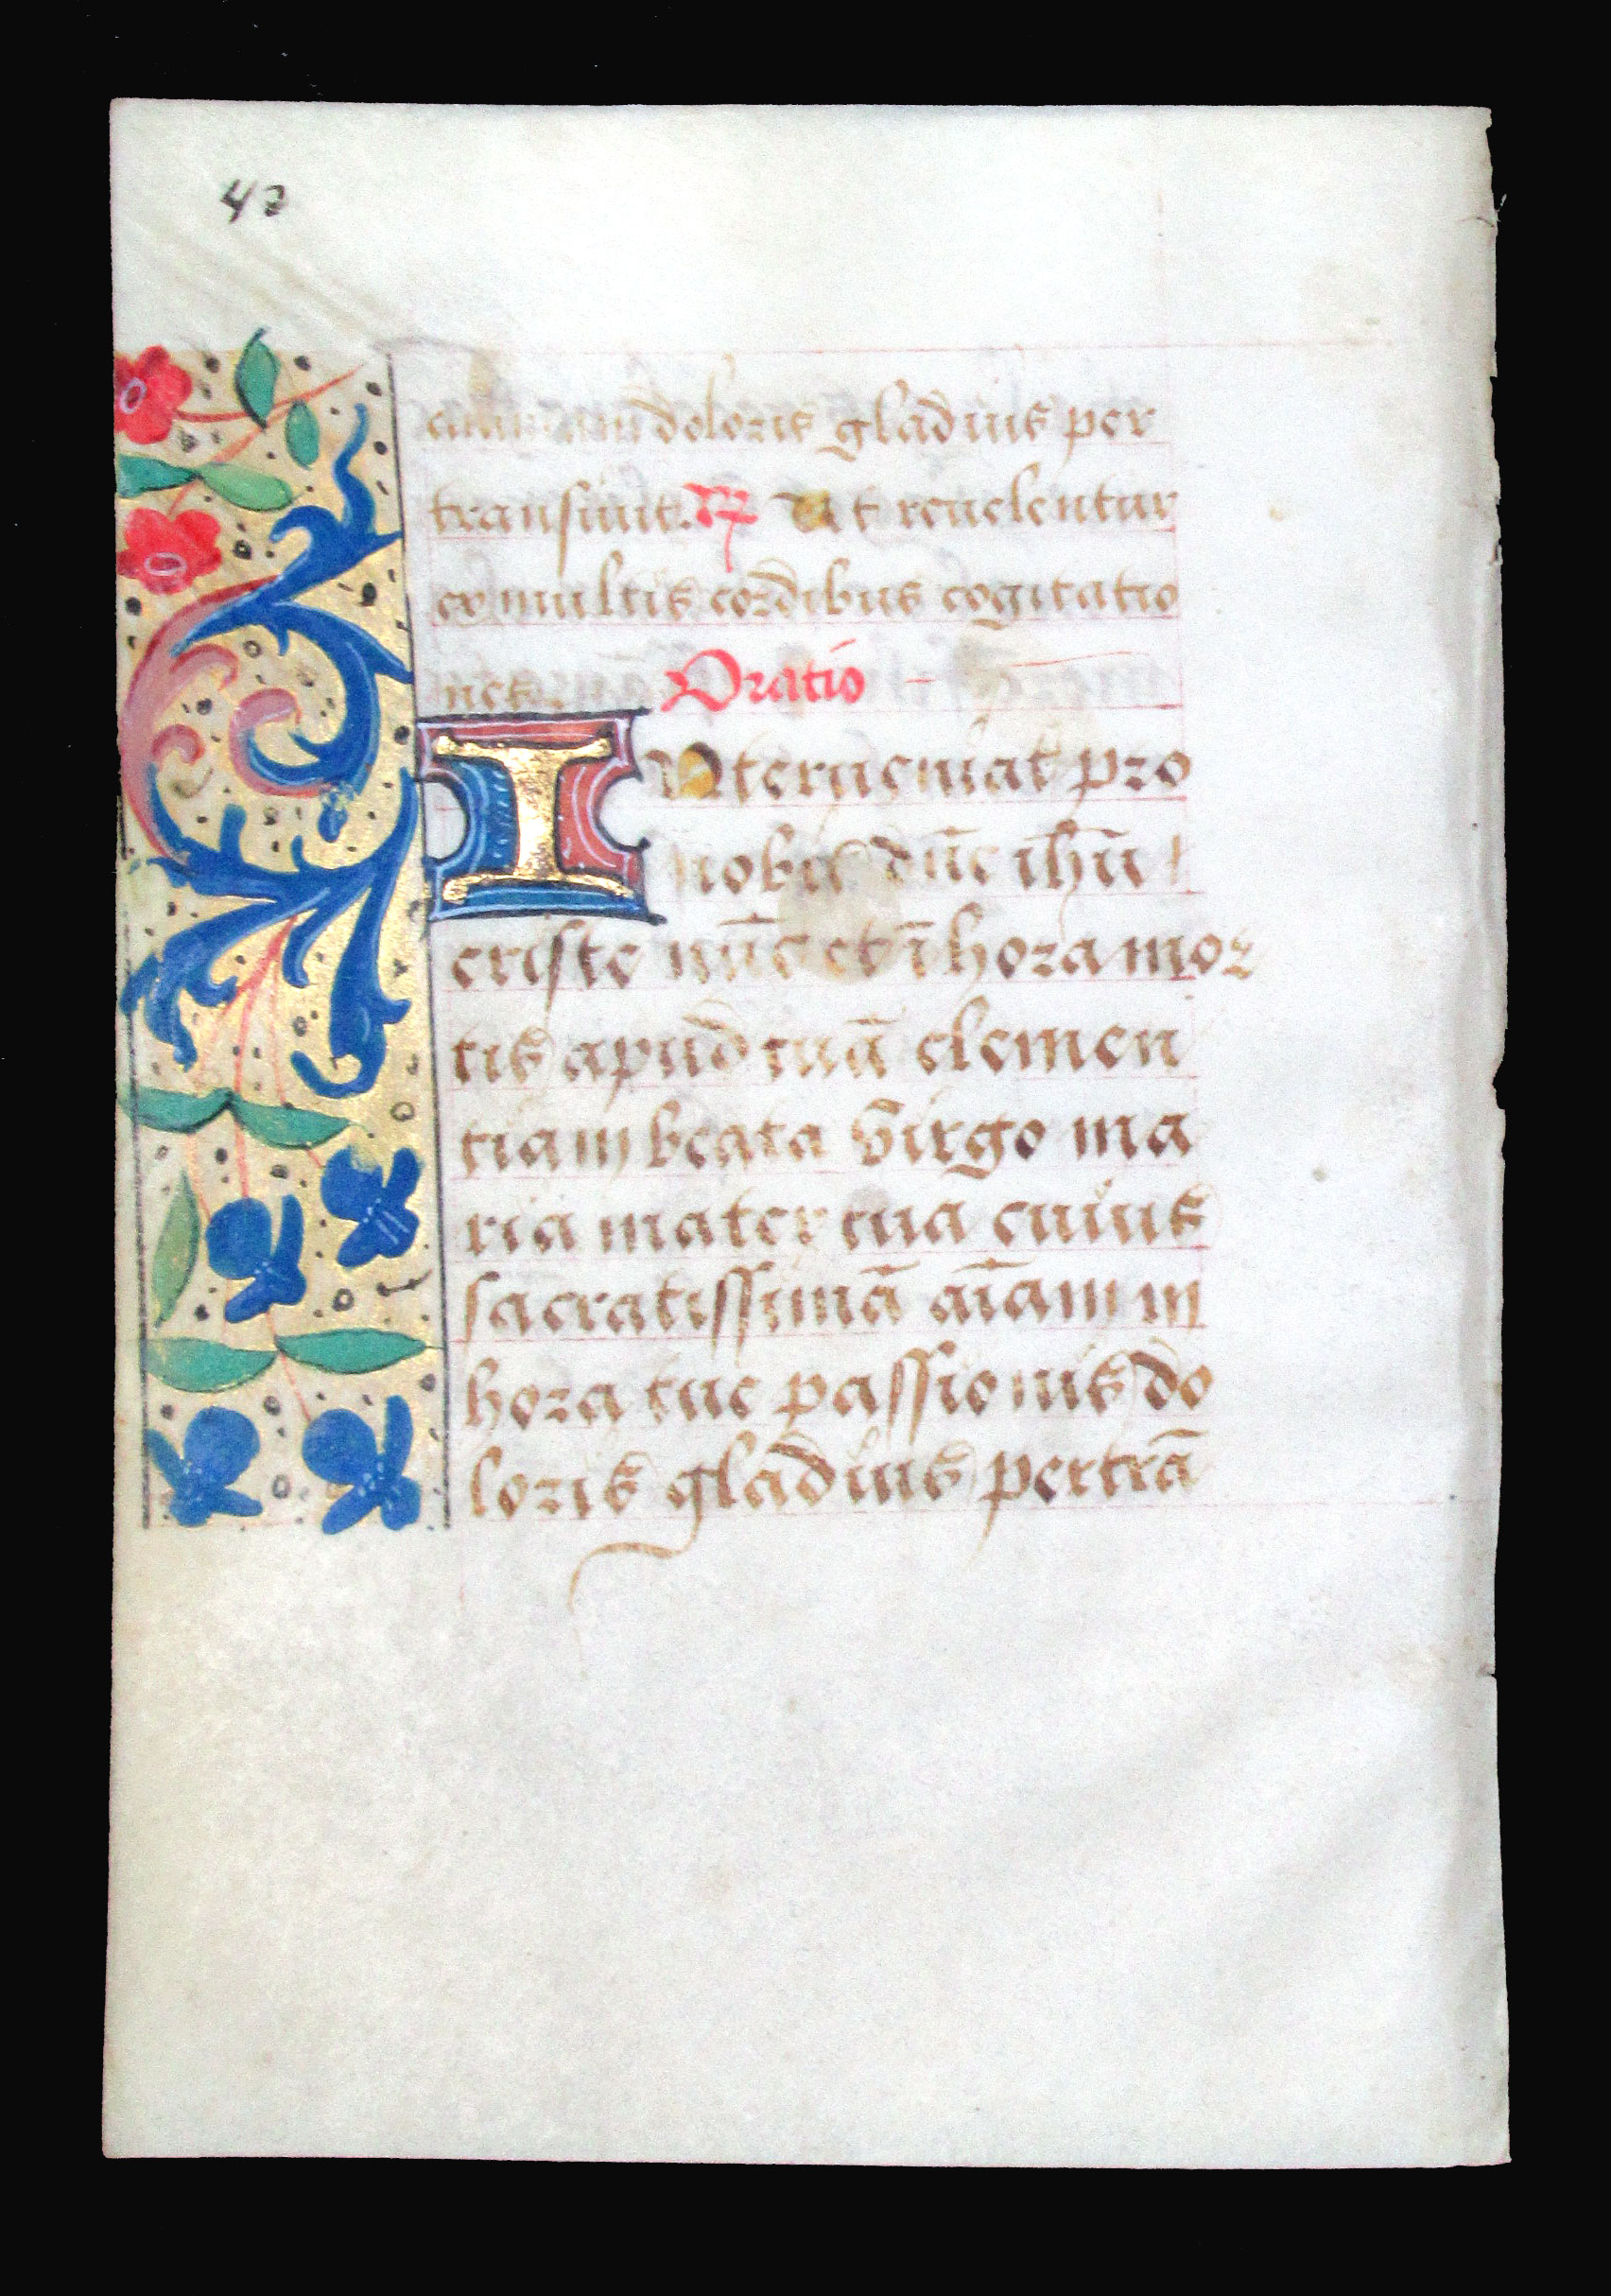 42
animam doloris gladius per
transiuit. ℟ Ut reuelentur
ex multis cordibus cogitatio
nes. Oratio
INterueniat pro
nobis dn̄e ih̄u
criste nūc et ī hora mor
tis apud tuā clemen
tiam beata virgo ma
ria mater tua cuius
sacratissimā aīam in
hora tue passionis do
loris gladius pertrā